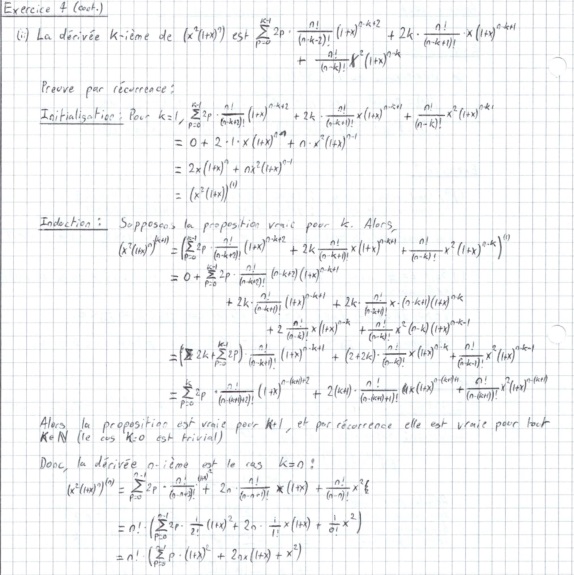 Exercice 1 (cont.)
(ii) La dérivée k-ième de (x²(1+x)ⁿ) est Σ_{p=0}^{k-1} 2p · n!/(n-k+2)! (1+x)^{n-k+2} + 2k · n!/(n-k+1)! · x(1+x)^{n-k+1}
+ n!/(n-k)! x²(1+x)^{n-k}
Preuve par récurrence :
Initialisation : Pour k=1, Σ_{p=0}^{k-1} 2p · n!/(n-k+2)! (1+x)^{n-k+2} + 2k · n!/(n-k+1)! x(1+x)^{n-k+1} + n!/(n-k)! x²(1+x)^{n-k}
= 0 + 2·1·x(1+x)ⁿ + n·x²(1+x)^{n-1}
= 2x(1+x)ⁿ + nx²(1+x)^{n-1}
= (x²(1+x))^{(1)}
Induction : Supposons la proposition vraie pour k. Alors,
(x²(1+x)ⁿ)^{(k+1)} = (Σ_{p=0}^{k-1} 2p · n!/(n-k+2)! (1+x)^{n-k+2} + 2k n!/(n-k+1)! x(1+x)^{n-k+1} + n!/(n-k)! x²(1+x)^{n-k})^{(1)}
= 0 + Σ_{p=0}^{k-1} 2p · n!/(n-k+2)! (n-k+2)(1+x)^{n-k+1}
+ 2k · n!/(n-k+1)! (1+x)^{n-k+1} + 2k · n!/(n-k+1)! x·(n-k+1)(1+x)^{n-k}
+ 2 n!/(n-k)! x(1+x)^{n-k} + n!/(n-k)! x²(n-k)(1+x)^{n-k-1}
= (2k + Σ_{p=0}^{k-1} 2p) · n!/(n-k+1)! (1+x)^{n-k+1} + (2+2k) · n!/(n-k)! x(1+x)^{n-k} + n!/(n-k-1)! x²(1+x)^{n-k-1}
= Σ_{p=0}^{k} 2p · n!/(n-(k+1)+2)! (1+x)^{n-(k+1)+2} + 2(k+1) · n!/(n-(k+1)+1)! x(1+x)^{n-(k+1)+1} + n!/(n-(k+1))! x²(1+x)^{n-(k+1)}
Alors la proposition est vraie pour k+1, et par récurrence elle est vraie pour tout
k∈ℕ (le cas k=0 est trivial)
Donc, la dérivée n-ième est le cas k=n :
(x²(1+x)ⁿ)^{(n)} = Σ_{p=0}^{n-1} 2p · n!/(n-n+2)! (1+x)² + 2n · n!/(n-n+1)! x(1+x) + n!/(n-n)! x²
= n! · (Σ_{p=0}^{n-1} 2p · 1/2! (1+x)² + 2n · 1/1! x(1+x) + 1/0! x²)
= n! · (Σ_{p=0}^{n-1} p · (1+x)² + 2nx(1+x) + x²)